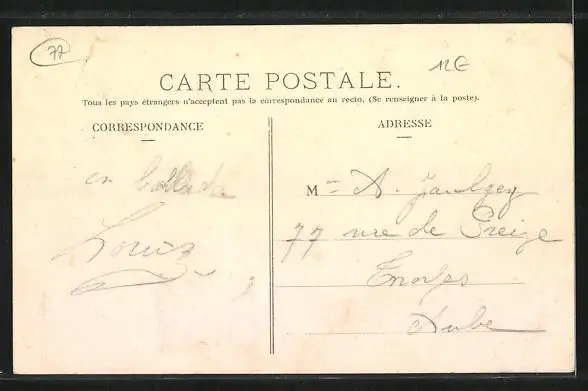 77
12€
CARTE POSTALE.
Tous les pays étrangers n'acceptent pas la correspondance au recto. (Se renseigner à la poste).
CORRESPONDANCE
ADRESSE
en ballade
Louis
M me A. Jaulgey
77 rue de Preize
Troyes
Aube